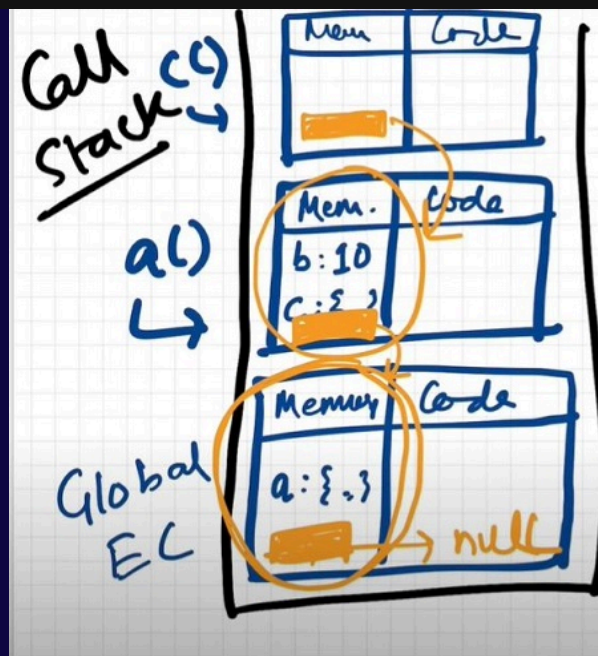 Call Stack
c()
Mem Code
a()
Mem. Code
b:10
c:{ }
Global EC
Memory Code
a:{.}
null